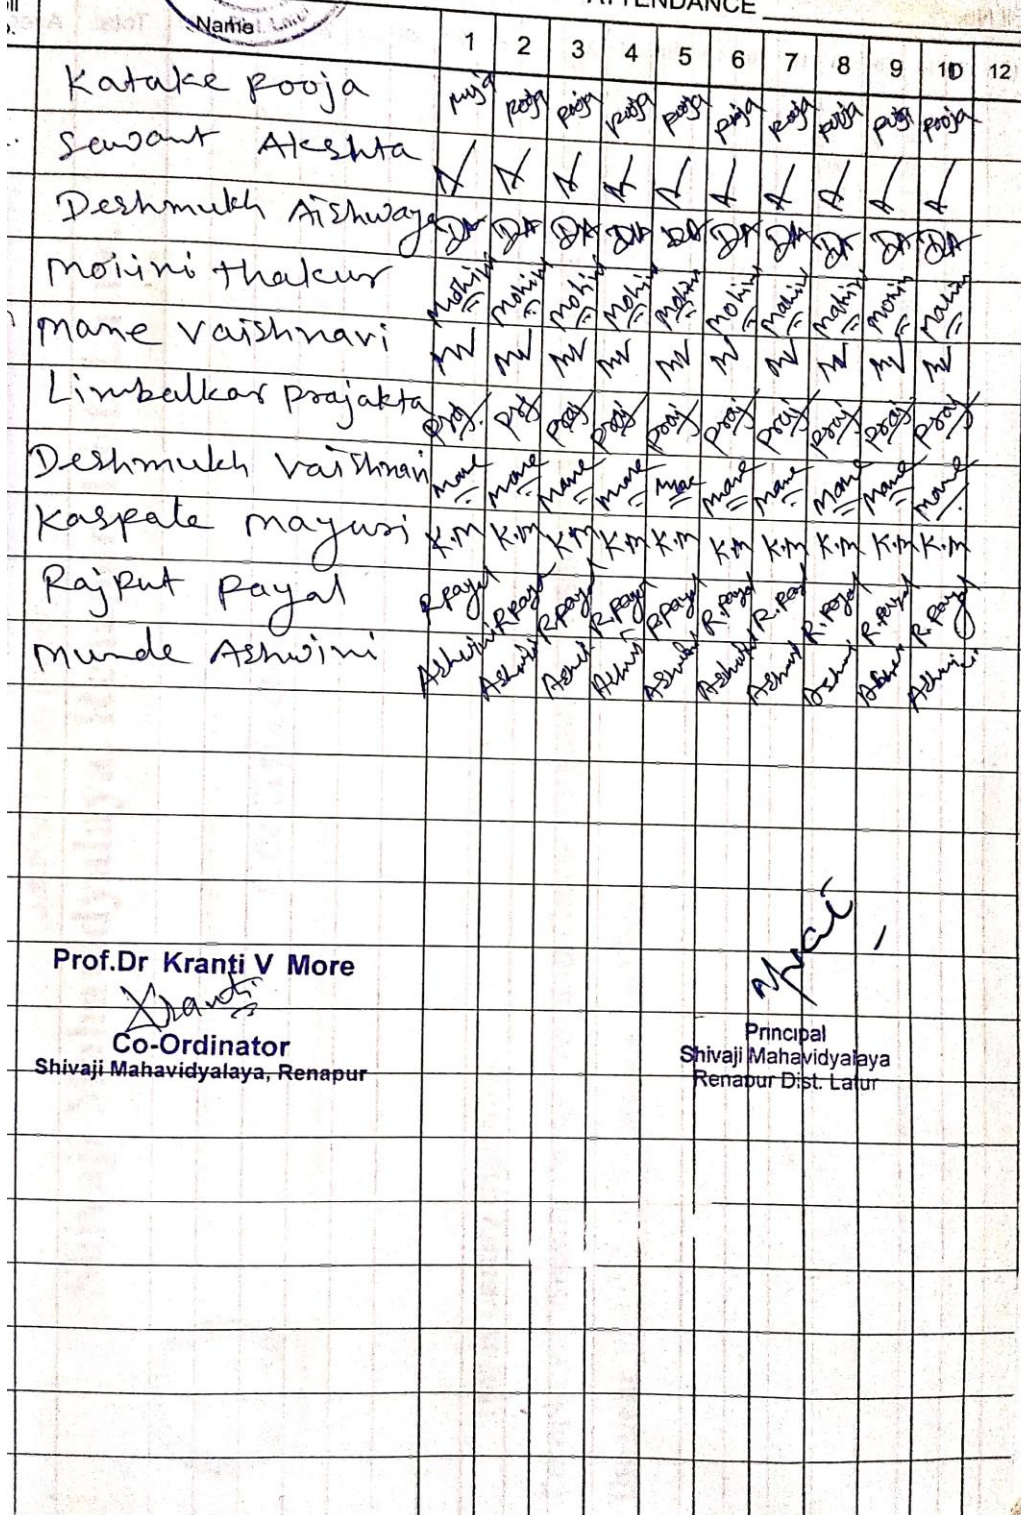 ATTENDANCE
Name 1 2 3 4 5 6 7 8 9 10 12
Katake Pooja puja pooja pooja pooja pooja pooja pooja pooja pooja pooja
Sawant Akshta A A A A A A A A A A
Deshmukh Aishwaya DA DA DA DA DA DA DA DA DA DA
Mohini thakur Mohini Mohini Mohini Mohini Mohini Mohini Mohini Mohini Mohini Mohini
Mane Vaishnavi MV MV MV MV MV MV MV MV MV MV
Limbalkar Prajakta Praj. Praj Praj Praj Praj Praj Praj Praj Praj Praj
Deshmukh Vaishnavi Mane Mane Mane Mane Mane Mane Mane Mane Mane Mane
Kaspate Mayuri K.M K.M K.M K.M K.M K.M K.M K.M K.M K.M
Rajput Payal R.payal R.payal R.payal R.payal R.payal R.payal R.payal R.payal R.payal R.payal
Munde Ashwini Ashwini Ashwini Ashwini Ashwini Ashwini Ashwini Ashwini Ashwini Ashwini Ashwini
Prof.Dr Kranti V More
Kranti
Co-Ordinator
Shivaji Mahavidyalaya, Renapur
Principal
Shivaji Mahavidyalaya
Renapur Dist. Latur